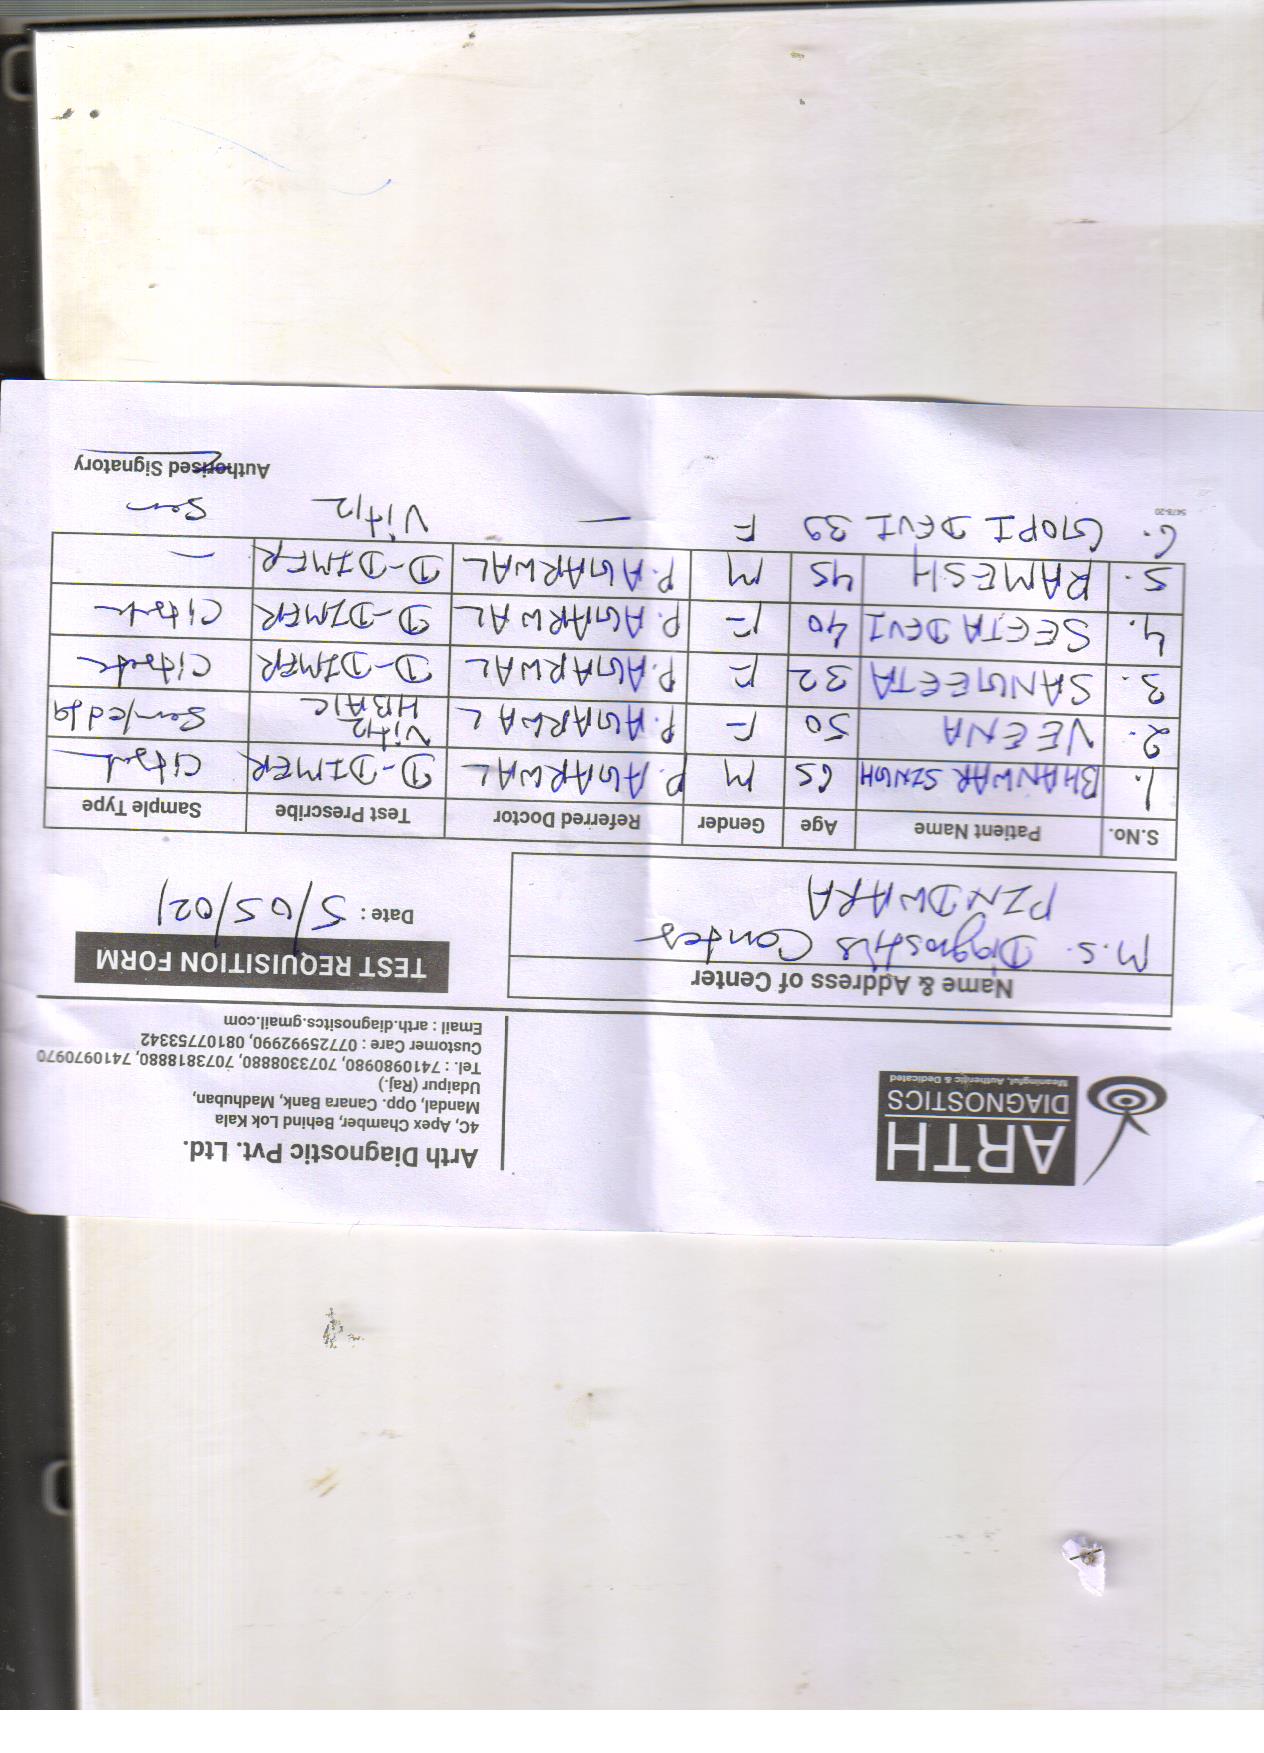 ARTH
DIAGNOSTICS
Meaningful, Authentic & Dedicated
Arth Diagnostic Pvt. Ltd.
4C, Apex Chamber, Behind Lok Kala
Mandal, Opp. Canara Bank, Madhuban,
Udaipur (Raj.)
Tel. : 7410980980, 7073308880, 7073818880, 7410970970
Customer Care : 07725992990, 08107753342
Email : arth.diagnositcs.gmail.com
Name & Address of Center
M.S. Diagnostics Center
PINDWARA
TEST REQUISITION FORM
Date : 5/05/021
S.No. Patient Name Age Gender Referred Doctor Test Prescribe Sample Type
1. BHANWAR SINGH 65 M P. AGARWAL D-DIMER
2. VEENA 50 F P. AGARWAL Vit12 HBA1C Ser/edta
3. SANGEETA 32 F P. AGARWAL D-DIMER Citrate
4. SEETA DEVI 40 F P. AGARWAL D-DIMER Citrate
5. RAMESH 45 M P. AGARWAL D-DIMER —
6. GOPI DEVI 39 F — Vit12
5678-20
Authorised Signatory